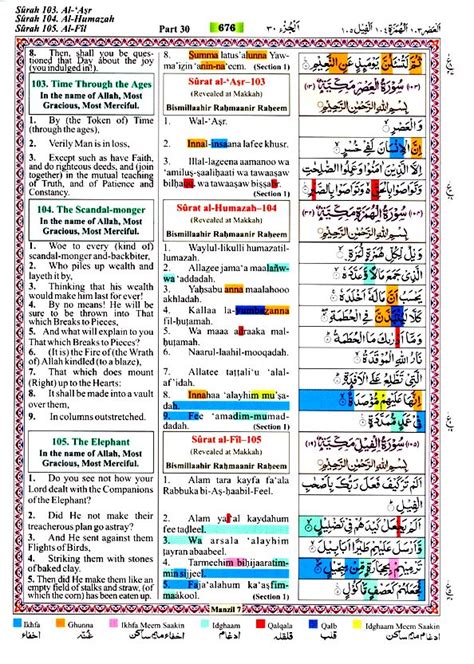 Sûrah 103. Al-'Aṣr
Sûrah 104. Al-Humazah
Sûrah 105. Al-Fîl
Part 30
676
الجزء ٣٠
العصر ١٠٣ الهمزة ١٠٤ الفيل ١٠٥
8. Then, shall you be ques-
tioned that Day about the joy
(you indulged in!).
103. Time Through the Ages
In the name of Allah, Most
Gracious, Most Merciful.
1. By (the Token) of Time
(through the ages),
2. Verily Man is in loss,
3. Except such as have Faith,
and do righteous deeds, and (join
together) in the mutual teaching
of Truth, and of Patience and
Constancy.
104. The Scandal-monger
In the name of Allah, Most
Gracious, Most Merciful.
1. Woe to every (kind of)
scandal-monger and-backbiter,
2. Who piles up wealth and
layeth it by,
3. Thinking that his wealth
would make him last for ever!
4. By no means! He will be
sure to be thrown into That
which Breaks to Pieces,
5. And what will explain to you
That which Breaks to Pieces?
6. (It is) the Fire of (the Wrath
of) Allah kindled (to a blaze),
7. That which does mount
(Right) up to the Hearts:
8. It shall be made into a vault
over them,
9. In columns outstretched.
105. The Elephant
In the name of Allah, Most
Gracious, Most Merciful.
1. Do you see not how your
Lord dealt with the Companions
of the Elephant?
2. Did He not make their
treacherous plan go astray?
3. And He sent against them
Flights of Birds,
4. Striking them with stones
of baked clay.
5. Then did He make them like an
empty field of stalks and straw, (of
which the corn) has been eaten up.
8. Summa latus'alunna Yaw-
ma'izin 'anin-na'eem. (Section 1)
Sûrat al-'Aṣr–103
(Revealed at Makkah)
Bismillaahir Raḥmaanir Raḥeem
1. Wal-'Aṣr.
2. Innal-insaana lafee khusr.
3. Illal-lazeena aamanoo wa
'amiluṣ-ṣaaliḥaati wa tawaaṣaw
bilḥaqqi, wa tawaaṣaw biṣṣabr.
(Section 1)
Sûrat al-Humazah–104
(Revealed at Makkah)
Bismillaahir Raḥmaanir Raḥeem
1. Waylul-likulli humazatil-
lumazah.
2. Allazee jama'a maalañw-
wa 'addadah.
3. Yaḥsabu anna maalahooo
akhladah.
4. Kallaa la-yumbazanna
fil-ḥuṭamah.
5. Wa maaa adraaka mal-
ḥuṭamah.
6. Naarul-laahil-mooqadah.
7. Allatee taṭṭali'u 'alal-
af'idah.
8. Innahaa 'alayhim mu'ṣa-
dah.
9. Fee 'amadim-mumad-
dadah. (Section 1)
Sûrat al-Fîl–105
(Revealed at Makkah)
Bismillaahir Raḥmaanir Raḥeem
1. Alam tara kayfa fa'ala
Rabbuka bi-Aṣḥaabil-Feel.
2. Alam yaj'al kaydahum
fee tadleel.
3. Wa arsala 'alayhim
ṭayran abaabeel.
4. Tarmeehim biḥijaaratim-
min sijjeel.
5. Faja'alahum ka'aṣfim-
maakool. (Section 1)
ثُمَّ لَتُسْـَٔلُنَّ يَوْمَئِذٍ عَنِ النَّعِيمِ ۝٨
(١٠٣) سُورَةُ الْعَصْرِ مَكِّيَّةٌ (١٣)
بِسْمِ اللّٰهِ الرَّحْمٰنِ الرَّحِيمِ
وَالْعَصْرِ ۝١
إِنَّ الْإِنْسَانَ لَفِي خُسْرٍ ۝٢
إِلَّا الَّذِينَ آمَنُوا وَعَمِلُوا الصّٰلِحٰتِ
وَتَوَاصَوْا بِالْحَقِّ وَتَوَاصَوْا بِالصَّبْرِ ۝٣
(١٠٤) سُورَةُ الْهُمَزَةِ مَكِّيَّةٌ (٣٢)
بِسْمِ اللّٰهِ الرَّحْمٰنِ الرَّحِيمِ
وَيْلٌ لِكُلِّ هُمَزَةٍ لُمَزَةٍ ۝١
الَّذِي جَمَعَ مَالًا وَعَدَّدَهُ ۝٢
يَحْسَبُ أَنَّ مَالَهُ أَخْلَدَهُ ۝٣
كَلَّا لَيُنْبَذَنَّ فِي الْحُطَمَةِ ۝٤
وَمَا أَدْرٰىكَ مَا الْحُطَمَةُ ۝٥
نَارُ اللّٰهِ الْمُوقَدَةُ ۝٦
الَّتِي تَطَّلِعُ عَلَى الْأَفْـِٕدَةِ ۝٧
إِنَّهَا عَلَيْهِمْ مُؤْصَدَةٌ ۝٨
فِي عَمَدٍ مُمَدَّدَةٍ ۝٩
(١٠٥) سُورَةُ الْفِيلِ مَكِّيَّةٌ (١٩)
بِسْمِ اللّٰهِ الرَّحْمٰنِ الرَّحِيمِ
أَلَمْ تَرَ كَيْفَ فَعَلَ رَبُّكَ بِأَصْحٰبِ
الْفِيلِ ۝١
أَلَمْ يَجْعَلْ كَيْدَهُمْ فِي تَضْلِيلٍ ۝٢
وَأَرْسَلَ عَلَيْهِمْ طَيْرًا أَبَابِيلَ ۝٣
تَرْمِيهِمْ بِحِجَارَةٍ مِنْ سِجِّيلٍ ۝٤
فَجَعَلَهُمْ كَعَصْفٍ مَأْكُولٍ ۝٥
Manzil 7
Ikhfa
Ghunna
Ikhfa Meem Saakin
Idghaam
Qalqala
Qalb
Idghaam Meem Saakin
اخفاء
غنّه
اخفاء میم ساكن
ادغام
قلقله
قلب
ادغام میم ساكن